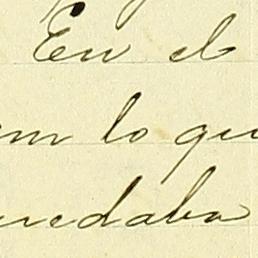 En el
em lo qu
uedaba